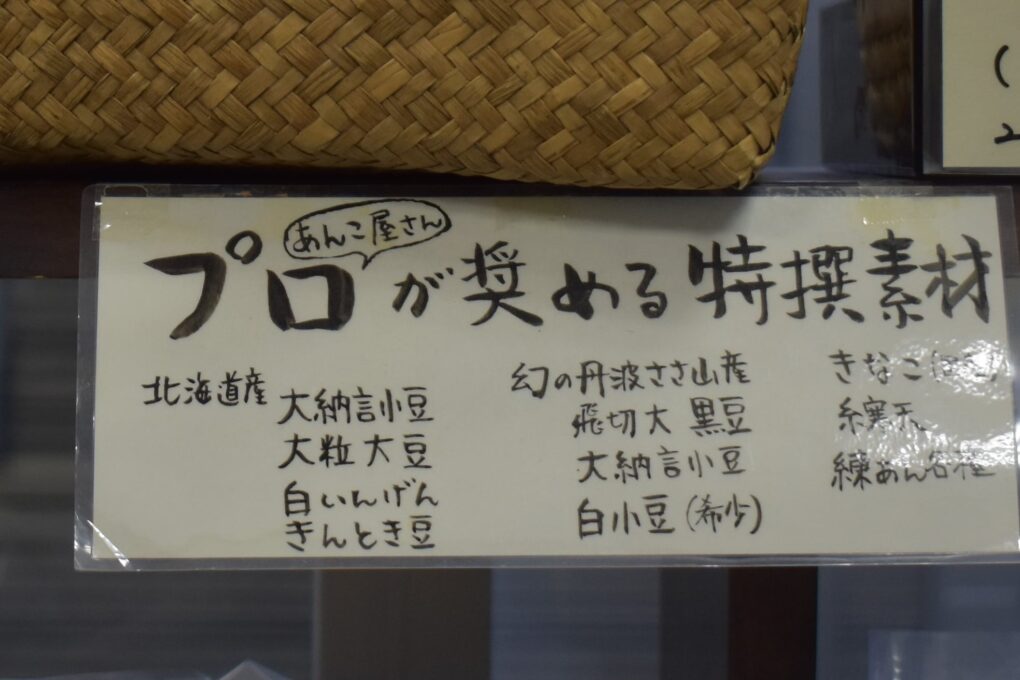 あんこ屋さん
プロが奨める特撰素材
北海道産
大納言小豆
大粒大豆
白いんげん
きんとき豆
幻の丹波ささ山産
飛切大 黒豆
大納言小豆
白小豆(希少)
きなこ
糸寒天
練あん各種